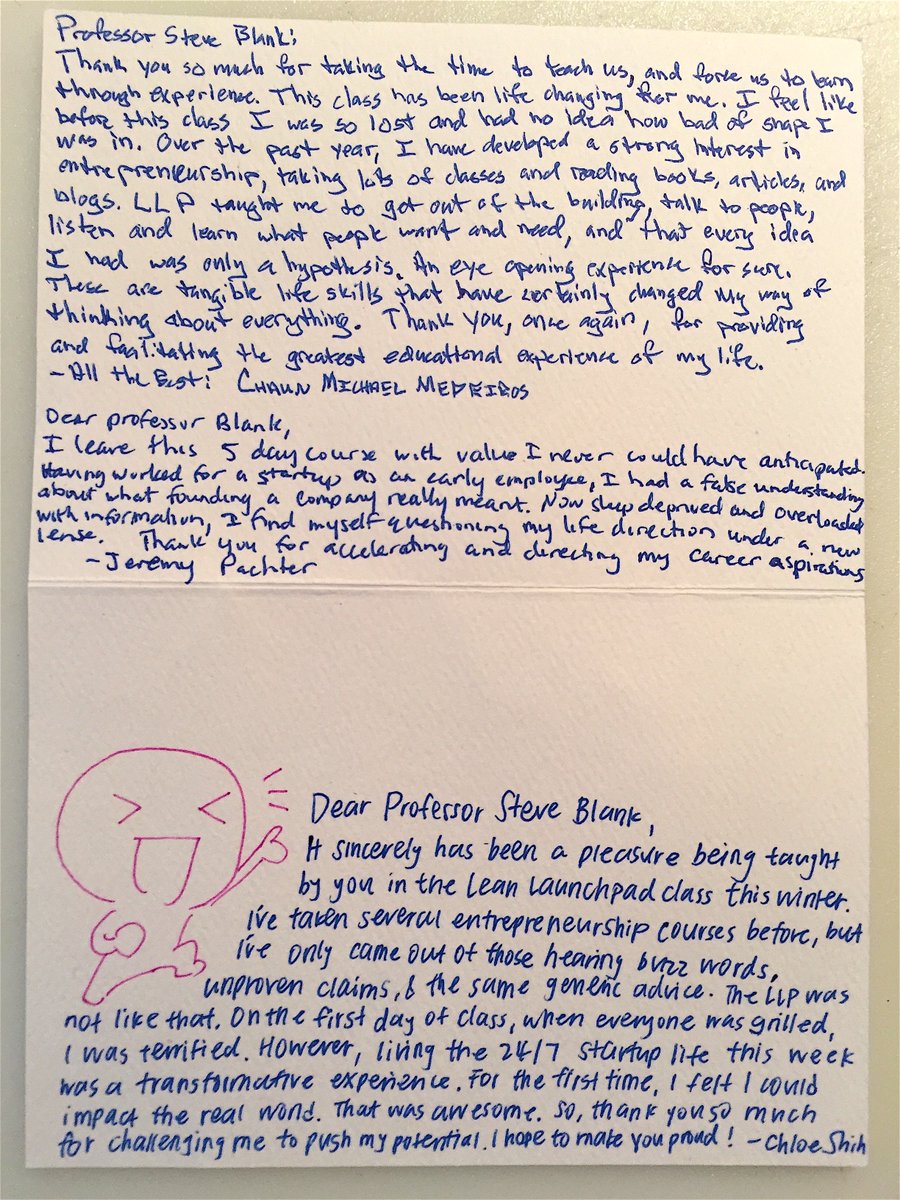 Professor Steve Blank:
Thank you so much for taking the time to teach us, and force us to learn
through experience. This class has been life changing for me. I feel like
before this class I was so lost and had no idea how bad of shape I
was in. Over the past year, I have developed a strong interest in
entrepreneurship, taking lots of classes and reading books, articles, and
blogs. LLP taught me to get out of the building, talk to people,
listen and learn what people want and need, and that every idea
I had was only a hypothesis. An eye opening experience for sure.
These are tangible life skills that have certainly changed my way of
thinking about everything. Thank you, once again, for providing
and facilitating the greatest educational experience of my life.
- All the Best: CHAUN MICHAEL MEDEIROS
Dear professor Blank,
I leave this 5 day course with value I never could have anticipated.
Having worked for a startup as an early employee, I had a false understanding
about what founding a company really meant. Now sleep deprived and overloaded
with information, I find myself questioning my life direction under a new
lense. Thank you for accelerating and directing my career aspirations
- Jeremy Pachter
Dear Professor Steve Blank,
It sincerely has been a pleasure being taught
by you in the Lean Launchpad class this winter.
I've taken several entrepreneurship courses before, but
I've only came out of those hearing buzz words,
unproven claims, & the same generic advice. The LLP was
not like that. On the first day of class, when everyone was grilled,
I was terrified. However, living the 24/7 startup life this week
was a transformative experience. For the first time, I felt I could
impact the real world. That was awesome. So, thank you so much
for challenging me to push my potential. I hope to make you proud! - Chloe Shih